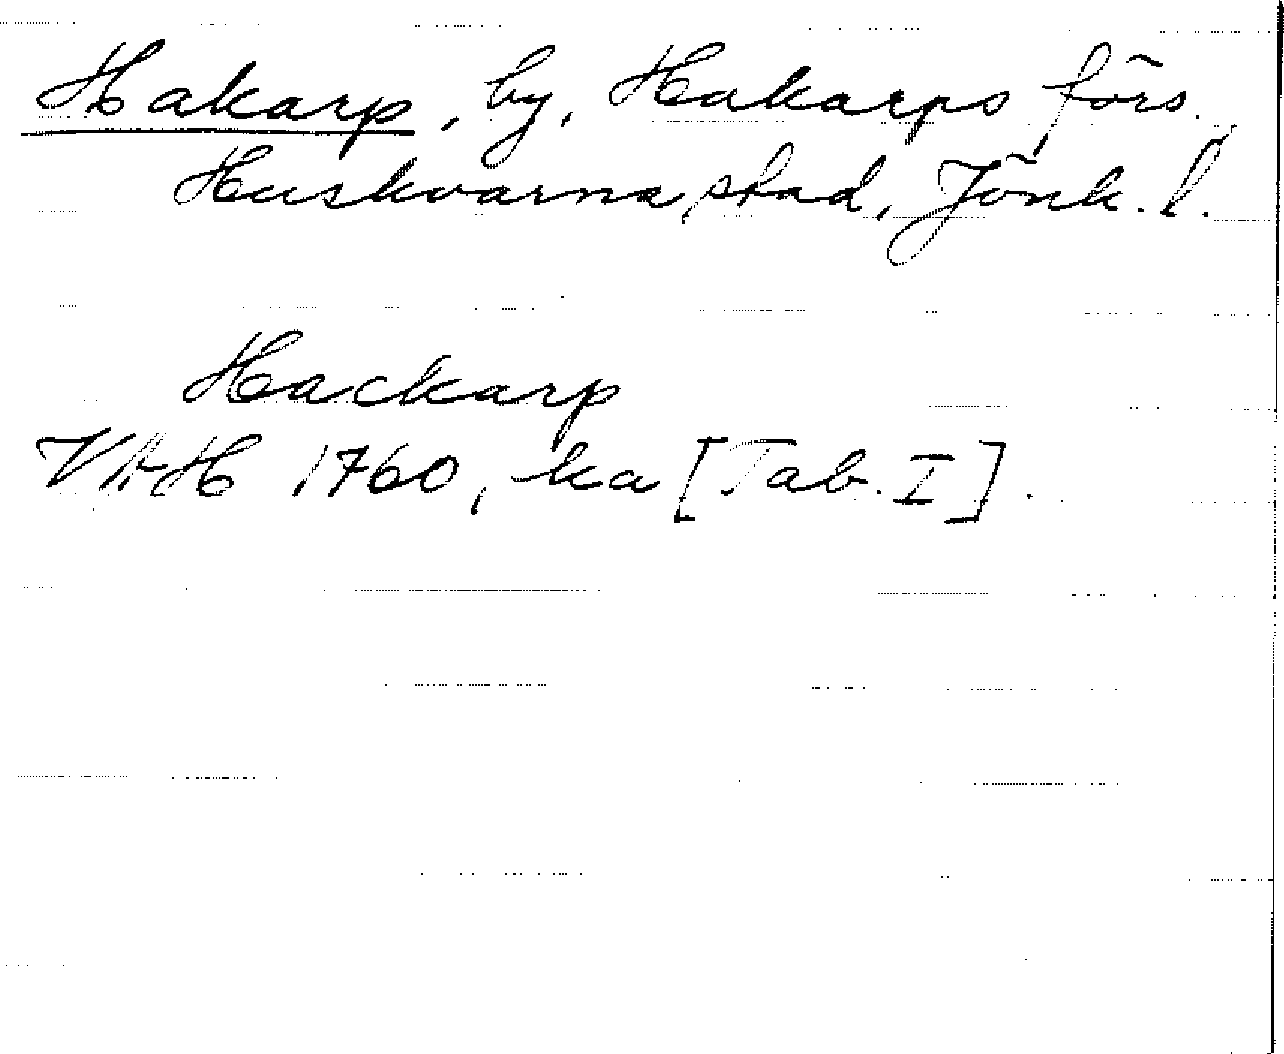 Hakarp, by, Hakarps förs.
Huskvarna stad, Jönk. l.
Hackarp
VAH 1760, ka [Tab. I].